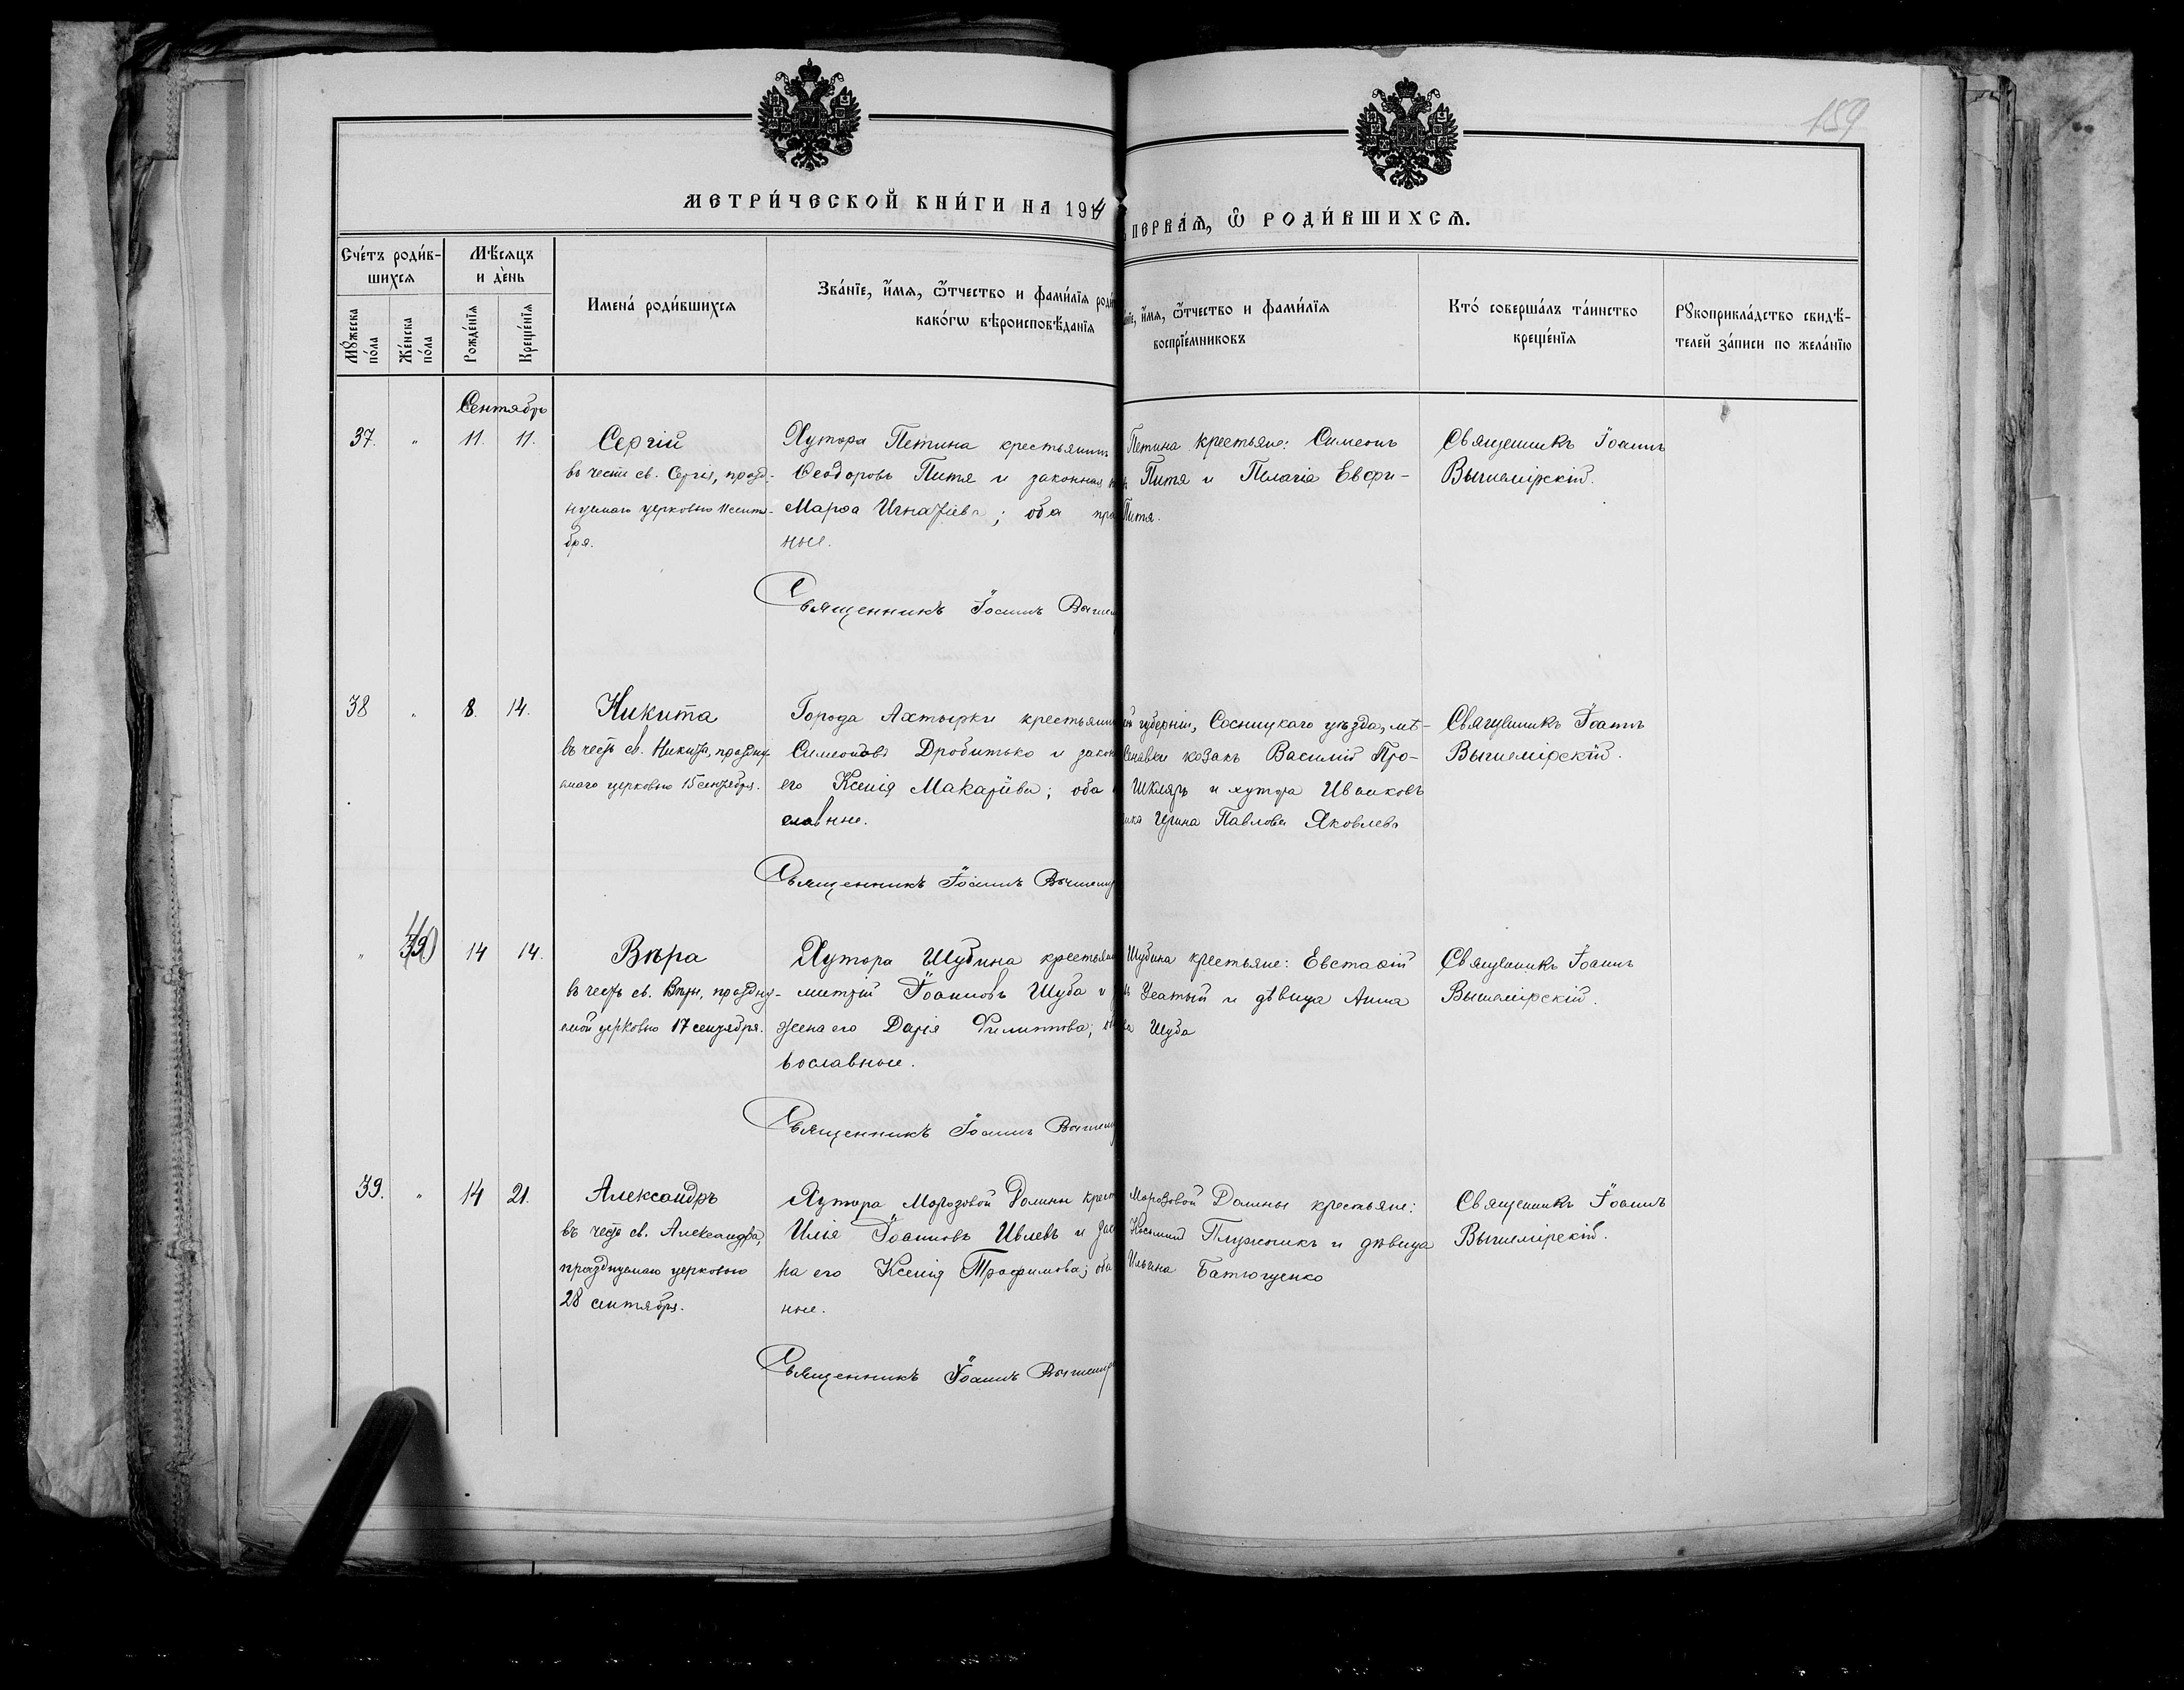 159
МЕТРИ́ЧЕСКОЙ КНИ́ГИ НА 1914
ПЕРВАѦ, Ѿ РОДИ́ВШИХСѦ.
Сче́тъ роди́в-
шихсѧ
Мѣ́сѧцъ
и де́нь
Мꙋ́жеска
по́ла
Же́нска
по́ла
Рожде́нїѧ
Креще́нїѧ
Имена́ роди́вшихсѧ
Зва́нїе, и́мѧ, ѻ҆́тчество и фами́лїѧ роди
како́гѡ вѣроисповѣ́данїѧ
и́мѧ, ѻ҆́тчество и фами́лїѧ
воспрїе́мниковъ
Кто́ соверша́лъ та́инство
креще́нїѧ
Рꙋкоприкла́дство свидѣ́-
телей за́писи по жела́нїю
Сентябрь
37. " 11. 11.
Сергій
въ честь св. Сергія, празд-
нуемаго церковью
бря.
Хутора Петина крестьянинъ
Ѳеодоровъ Питя и законная
Марѳа Игнатіева; оба пра
ные.
Священникъ Іоаннъ Вышеми
Петина крестьяне: Симеонъ
Питя и Пелагія Евфи-
Питя.
Священникъ Іоаннъ
Вышемірскій.
38 " 8. 14.
Никита
въ честь св. Никиты, праздну-
емаго церковью 15 сентября.
Города Ахтырки крестьянин
Симеоновъ Дробитько и закон
его Ксенія Макаріева; оба
славные.
Священникъ Іоаннъ Вышемі
губерніи, Сосницкаго уѣзда, мѣ-
козакъ Василій Про-
Шкляръ и хутора Иваковъ
Павлова Яковлева
Священникъ Іоаннъ
Вышемірскій.
" 40 14 14.
Вѣра
въ честь св. Вѣры, праздну-
емой церковью 17 сентября.
Хутора Шубина крестьян
митрій Іоанновъ Шуба и
жена его Дарія Филиппова;
вославные.
Священникъ Іоаннъ Вышемі
Шубина крестьяне: Евстаѳій
Усатый и дѣвица Анна
Шуба
Священникъ Іоаннъ
Вышемірскій.
39. " 14 21.
Александръ
въ честь св. Александра,
празднуемаго церковью
28 сентября.
Хутора Морозовой Долины крест
Илія Іоанновъ Ивлевъ и зак
на его Ксенія Трофимова; оба
ные.
Священникъ Іоаннъ Вышемір
Морозовой Долины крестьяне:
Плужникъ и дѣвица
Ильина Батюченко
Священникъ Іоаннъ
Вышемірскій.